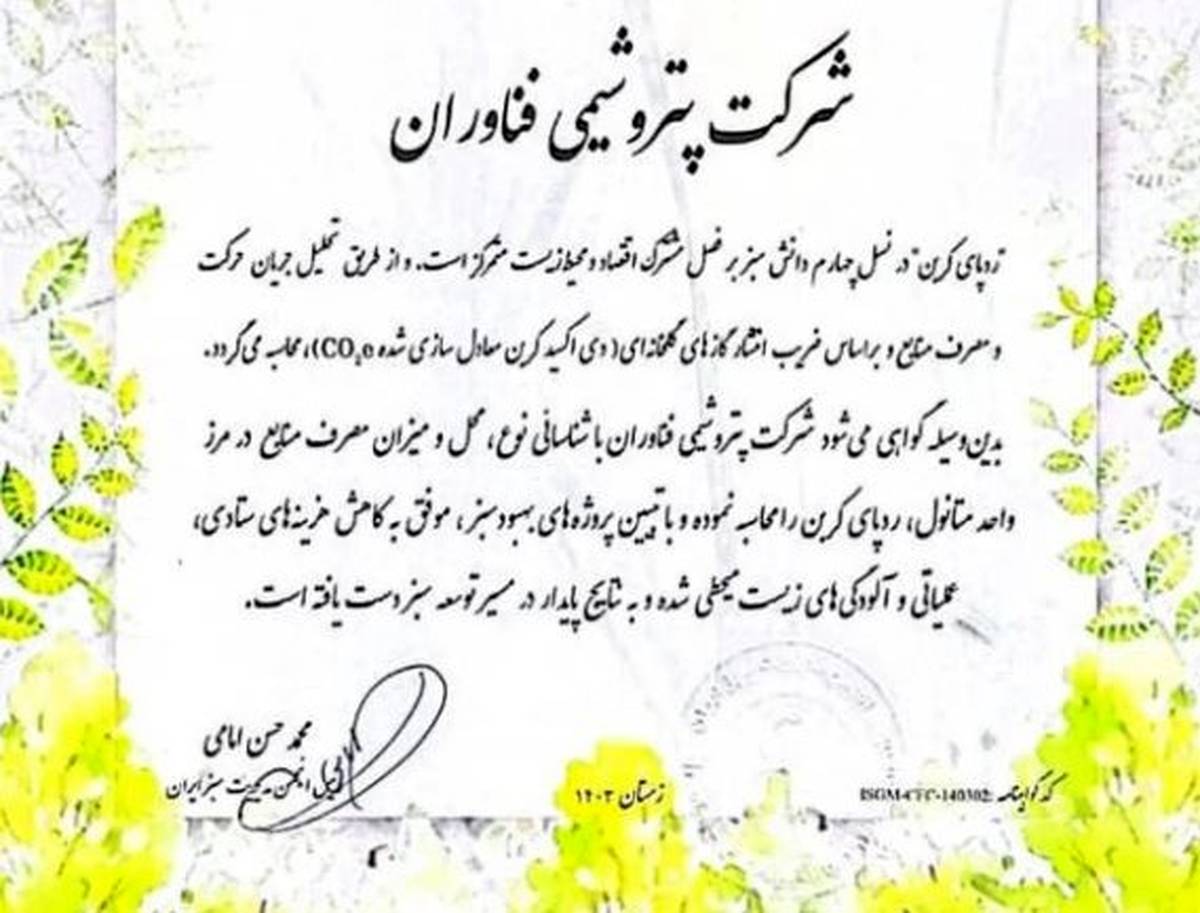 شرکت پتروشیمی فناوران
"ردپای کربن" در نسل چهارم دانش سبز بر فصل مشترک اقتصاد و محیط‌زیست متمرکز است. و از طریق تحلیل جریان حرکت
و مصرف منابع و براساس ضریب انتشار گازهای گلخانه‌ای (دی اکسید کربن معادل سازی شده CO₂e)، محاسبه می‌گردد.
بدین‌وسیله گواهی می‌شود شرکت پتروشیمی فناوران با شناسائی نوع، محل و میزان مصرف منابع در مرز
واحد متانول، ردپای کربن را محاسبه نموده و با تبیین پروژه‌های بهبود سبز، موفق به کاهش هزینه‌های ستادی،
عملیاتی و آلودگی‌های زیست محیطی شده و به نتایج پایدار در مسیر توسعه سبز دست یافته است.
محمد حسن امامی
انجمن مدیریت سبز ایران
زمستان ۱۴۰۳
کد گواهینامه: ISGM-CFC-140302